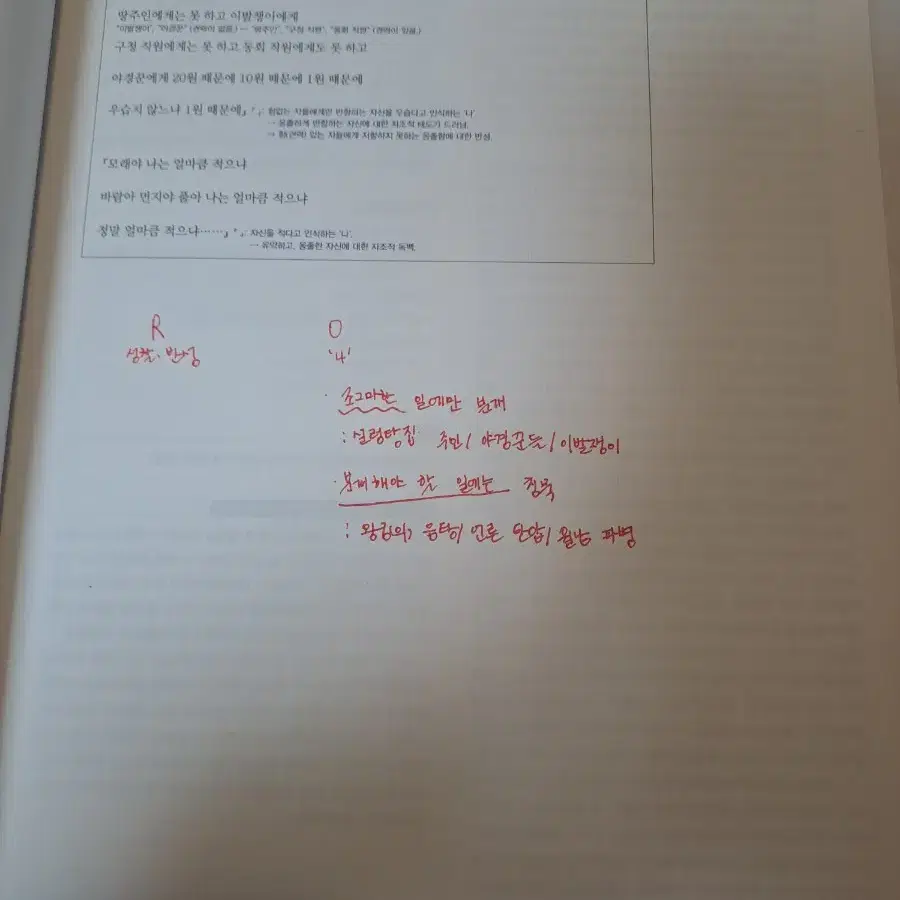 땅주인에게는 못 하고 이발쟁이에게
"이발쟁이", "야경꾼" (권력이 없음.) ↔ "땅주인", "구청 직원", "동회 직원" (권력이 있음.)
구청 직원에게는 못 하고 동회 직원에게도 못 하고
야경꾼에게 20원 때문에 10원 때문에 1원 때문에
우습지 않느냐 1원 때문에』 『 』: 힘없는 자들에게만 반항하는 자신을 우습다고 인식하는 '나'.
→ 옹졸하게 반항하는 자신에 대한 자조적 태도가 드러남.
→ 힘(권력) 있는 자들에게 저항하지 못하는 옹졸함에 대한 반성.
『모래야 나는 얼마큼 적으냐
바람아 먼지야 풀아 나는 얼마큼 적으냐
정말 얼마큼 적으냐……』 『 』: 자신을 작다고 인식하는 '나'.
→ 유약하고, 옹졸한 자신에 대한 자조적 독백.
R O
성찰·반성 '나'
· 조그마한 일에만 분개
: 설렁탕집 주인/ 야경꾼들/ 이발쟁이
· 분개해야 할 일에는 침묵
: 왕궁의 음탕/ 언론 탄압/ 월남 파병